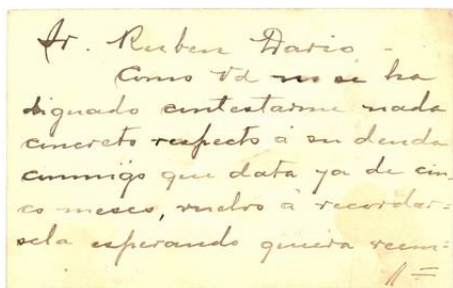 Sr. Ruben Dario -
Como Vd no se ha
dignado contestarme nada
concreto respecto á su deuda
conmigo que data ya de cin-
co meses, vuelvo á recordar=
sela esperando quiera reem=